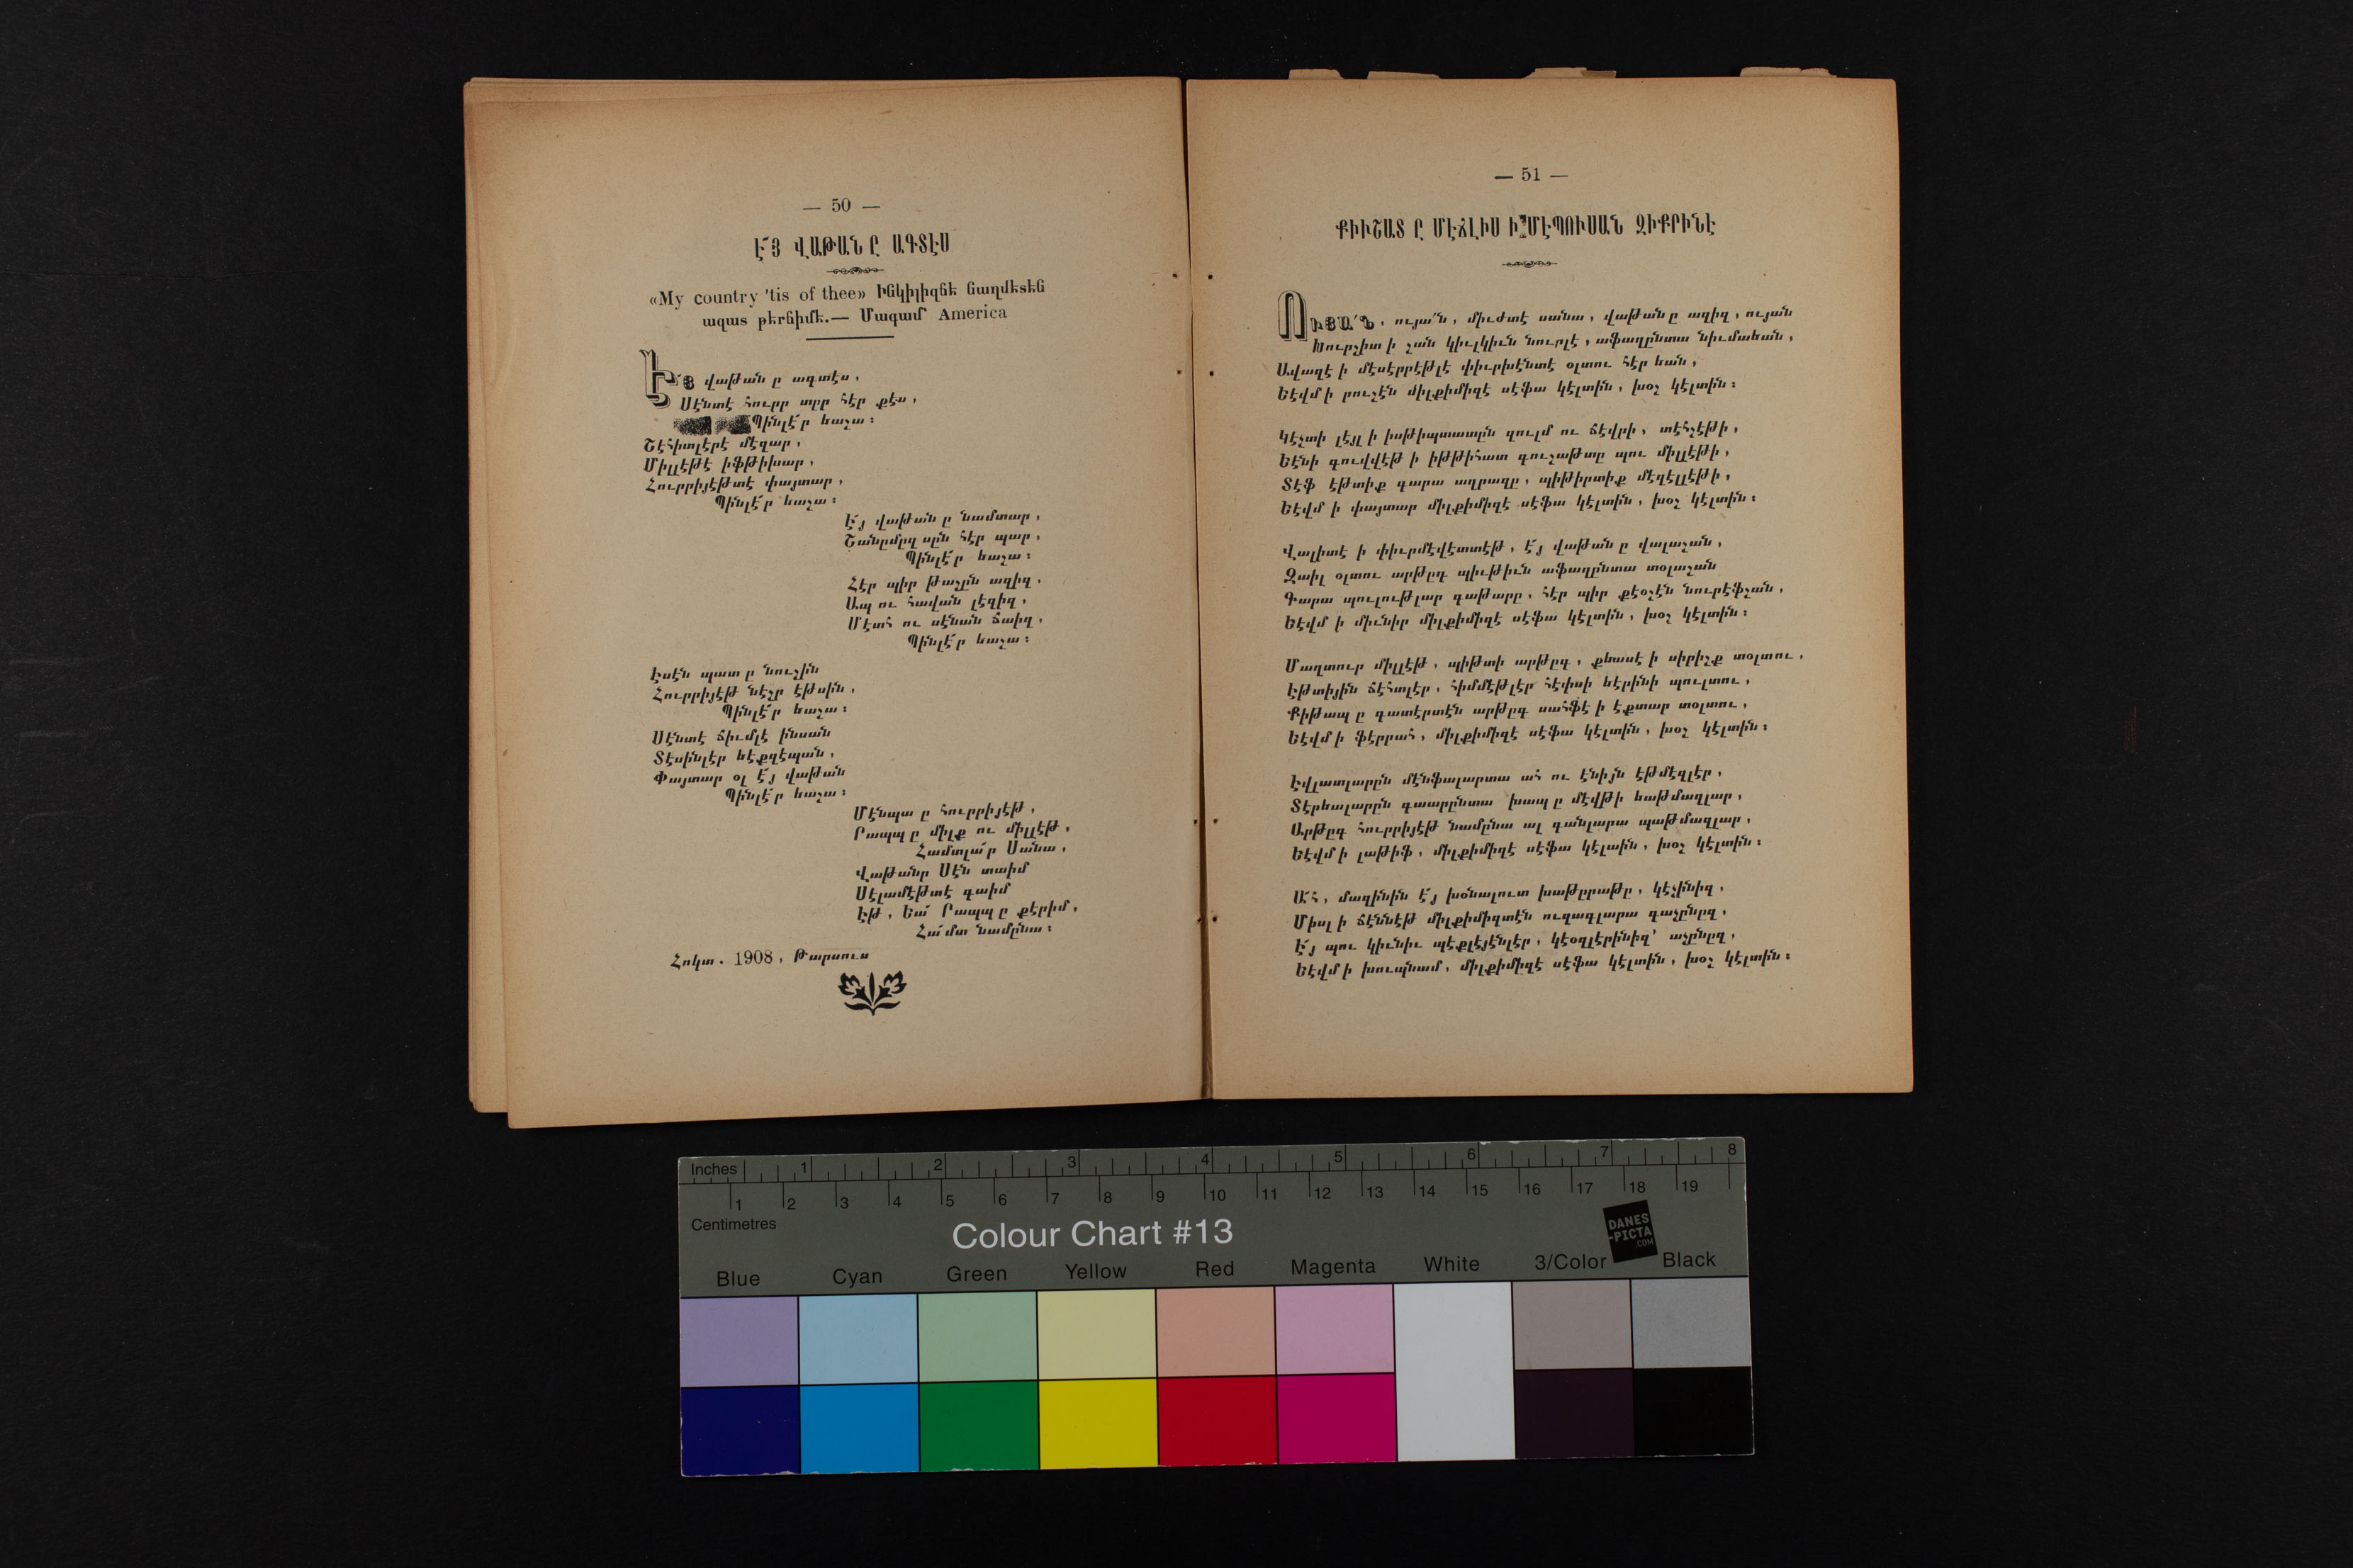 — 50 —
Է՜Յ ՎԱԹԱՆ Ը ԱԳՏԷՍ
«My country 'tis of thee» Ինկիլիզճէ նաղմէտէն
ազատ թէրճիմէ.— Մագամ America
Է՜Յ վաթան ը ագտէս,
Սէնտէ հուրր տըր հէր քէս,
Պինլէ՛ր եաշա։
Շէհիտլէրէ մէզար,
Միլլէթէ իֆթիխար,
Հուրրիյէթտէ փայտար,
Պինլէ՛ր եաշա։
Է՜յ վաթան ը նամտար,
Շանըմըզ սըն հէր պար,
Պինլէ՛ր եաշա։
Հէր պիր թաշըն ազիզ,
Ապ ու հավան լէզիզ,
Մէտհ ու սէնան ճաիզ,
Պինլէ՛ր եաշա։
Էսէն պատ ը նուշին
Հուրրիյէթ նէշր էթսին,
Պինլէ՛ր եաշա։
Սէնտէ ճիւմլէ ինսան
Տէսինլէր եէքզէպան,
Փայտար օլ է՜յ վաթան
Պինլէ՛ր եաշա։
Մէնպա ը հուրրիյէթ,
Րապպ ը միլք ու միլլէթ,
Համտլա՛ր Սանա,
Վաթանը Սէն տաիմ
Սէլամէթտէ գաիմ
Էթ, Եա՛ Րապպ ը քէրիմ,
Հա՛մտ նամընա։
Հոկտ. 1908, Թարսուս
— 51 —
ՔԻՒՇԱՏ Ը ՄԷՃԼԻՍ Ի ՄԷՊՈՒՍԱՆ ԶԻՔՐԻՆԷ
ՈՒՅԱ՛Ն, ույա՛ն, միւժտէ սանա, վաթան ը ազիզ, ույան
Խուրշիտ ի շան կիւլկիւն նուրլէ, աֆագընտա նիւմաեան,
Ավազէ ի մէսէրրէթլէ փիւրխէնտէ օլտու հէր եան,
Եէվմ ի րուշէն միլքիմիզէ սէֆա կէլտին, խօշ կէլտին։
Կէչտի լէյլ ի իսթիպտատըն զուլմ ու ճէվրի, տէհշէթի,
Եէնի գուվվէթ ի իթթիհատ գուշաթտը պու միլլէթի,
Տէֆ էթտիք գարա աղրազը, պիթիրտիք մէզէլլէթի,
Եէվմ ի փայտար միլքիմիզէ սէֆա կէլտին, խօշ կէլտին։
Վալիտէ ի փիւրմէվէտտէթ, է՜յ վաթան ը վալաշան,
Զաիլ օլտու արթըգ պիւթիւն աֆագընտա տօլաշան
Գարա պուլութլար գաթարը, հէր պիր քէօշէն նուրէֆշան,
Եէվմ ի միւնիր միլքիմիզէ սէֆա կէլտին, խօշ կէլտին։
Մաղտուր միլլէթ, պիթտի արթըգ, քեասէ ի սիրիշք տօլտու,
Էթտիյին ճէհտլէր, հիմմէթլէր հէփսի եէրինի պուլտու,
Քիթապ ը գատէրտէն արթըգ սահֆէ ի էքտար տօլտու,
Եէվմ ի ֆէրրահ, միլքիմիզէ սէֆա կէլտին, խօշ կէլտին։
Էվլատլարըն մէնֆալարտա ահ ու էնիյն էթմէզլէր,
Տէրեալարըն գաարընտա խապ ը մէվթի եաթմազլար,
Արթըգ հուրրիյէթ նամընա ալ գանլարա պաթմազլար,
Եէվմ ի լաթիֆ, միլքիմիզէ սէֆա կէլտին, խօշ կէլտին։
Ա՛հ, մազինին է՜յ խօնալուտ խաթըրաթը, կէչինիզ,
Միսլ ի ճէննէթ միլքիմիզտէն ուզագլարա գաչընըզ,
Է՜յ պու կիւնիւ պէքլէյէնլէր, կէօզլէրինիզ՝ աչընըզ,
Եէվմ ի խուպնամ, միլքիմիզէ սէֆա կէլտին, խօշ կէլտին։
Inches 1 2 3 4 5 6 7 8
1 2 3 4 5 6 7 8 9 10 11 12 13 14 15 16 17 18 19
Centimetres
Colour Chart #13
DANES
-PICTA
.COM
Blue Cyan Green Yellow Red Magenta White 3/Color Black